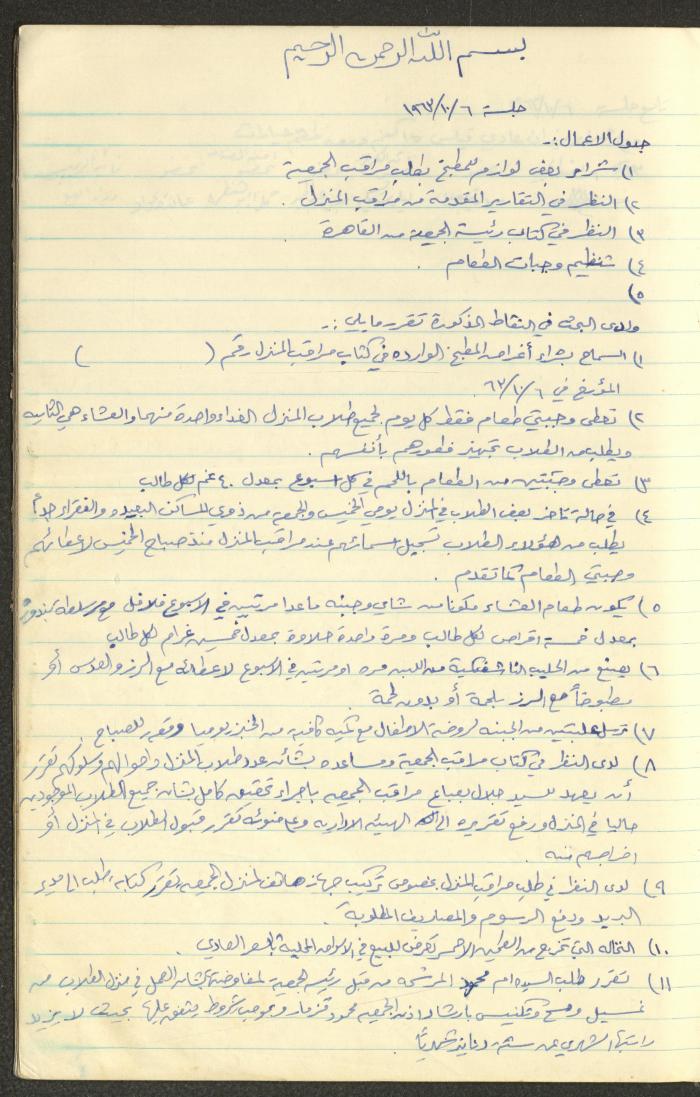 بسم الله الرحمن الرحيم
جلسة ٦/١٠/١٩٦٣
جدول الاعمال :-
١) شراء بعض لوازم للمطبخ بطلب مراقب الجمعية
٢) النظر في التقارير المقدمة من مراقب المنزل
٣) النظر في كتاب رئيسة الجمعية من القاهرة .
٤) تنظيم وجبات الطعام .
٥)
ولدى البحث في النقاط المذكورة تقرر مايلي :-
١) السماح بشراء أغراض المطبخ الوارده في كتاب مراقب المنزل رقم ( )
المؤرخ في ٦/١٠/٦٣.
٢) تعطى وجبتي طعام فقط كل يوم لجميع طلاب المنزل الغداء واحدة منهما والعشاء هي الثانيه
ويطلب من الطلاب تجهيز فطورهم بأنفسهم .
٣) تعطى وجبتين من الطعام باللحم في كل اسبوع بمعدل ٤٠ غم لكل طالب
٤) في حالة تأخر بعض الطلاب في المنزل يومي الخميس والجمعه من ذوي المساكن البعيده والفقراء جداً
يطلب من هؤلاء الطلاب تسجيل اسمائهم عند مراقب المنزل منذ صباح الخميس لاعطائهم
وجبتي الطعام كما تقدم .
٥) يكون طعام العشاء مكونا من شاي وجبنه ما عدا مرتين في الاسبوع فلافل مع سلطة بندورة
بمعدل خمسة اقراص لكل طالب ومرة واحدة حلاوة بمعدل خمسين غرام لكل طالب
٦) يصنع من الحليب الناشف كمية من اللبن مره او مرتين في الاسبوع لاعطائه مع الرز والعدس أو
مطبوخاً مع الرز بلحمة أو بدون لحمة .
٧) ترسل علبتين من الجبنه لروضة الاطفال مع كميه كافيه من الخبز يوميا وفطور للصباح .
٨) لدى النظر في كتاب مراقب الجمعية ومساعده بشأن عدد طلاب المنزل واحوالهم وسلوكهم تقرر
أن يعهد للسيد جلال مراقب الجمعيه باجراء تحقيق كامل بشأن جميع الطلاب الموجودين
حاليا في المنزل ورفع تقريره الى الهيئه الاداريه وعلى ضوئه تقرر قبول الطلاب في المنزل أو
اخراجهم منه .
٩) لدى النظر في طلب مراقب المنزل بخصوص تركيب جهاز هاتف لمنزل الجمعيه تقرر كتابة طلب الى مدير
البريد ودفع الرسوم والمصاريف المطلوبة .
١٠) النخاله التي تخرج من الطحين الاسمر تعرض للبيع في الاسواق المحلية بالسعر العادي .
١١) تقرر طلب السيده ام محمود المرشحه من قبل رئيس الجمعية لمفاوضتها بشأن العمل في منزل الطلاب من
غسيل ومسح وتكنيس بارشاد اذن الجمعيه محمود قزمار وبموجب شروط متفق عليها بحيث لا يزيد
راتبها الشهري عن ستة دنانير شهرياً .